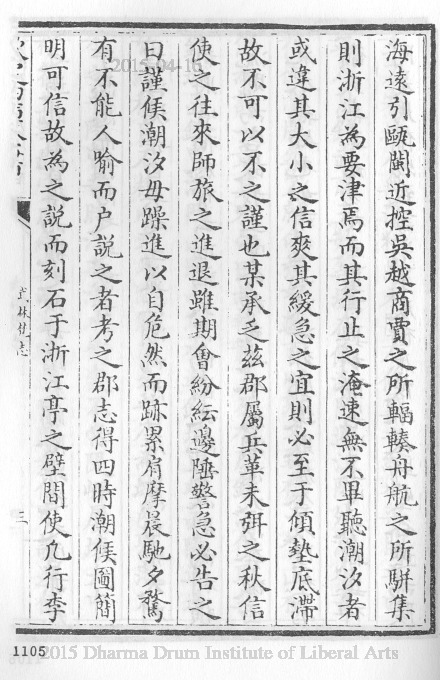 海遠引甌閩近控吳越商賈之所輻輳舟航之所駢集
則浙江為要津焉而其行止之淹速無不畢聽潮汐者
或違其大小之信爽其緩急之宜則必至于傾墊底滯
故不可以不之謹也某承乏茲郡屬兵革未弭之秋信
使之往來師旅之進退雖期會紛紜邊陲警急必告之
曰謹候潮汐毋躁進以自危然而跡累肩摩晨馳夕騖
有不能人喻而户説之者考之郡志得四時潮候圖簡
明可信故為之説而刻石于浙江亭之壁間使凡行李
武林舊志
三
1105
2015-04-16
2015 Dharma Drum Institute of Liberal Arts